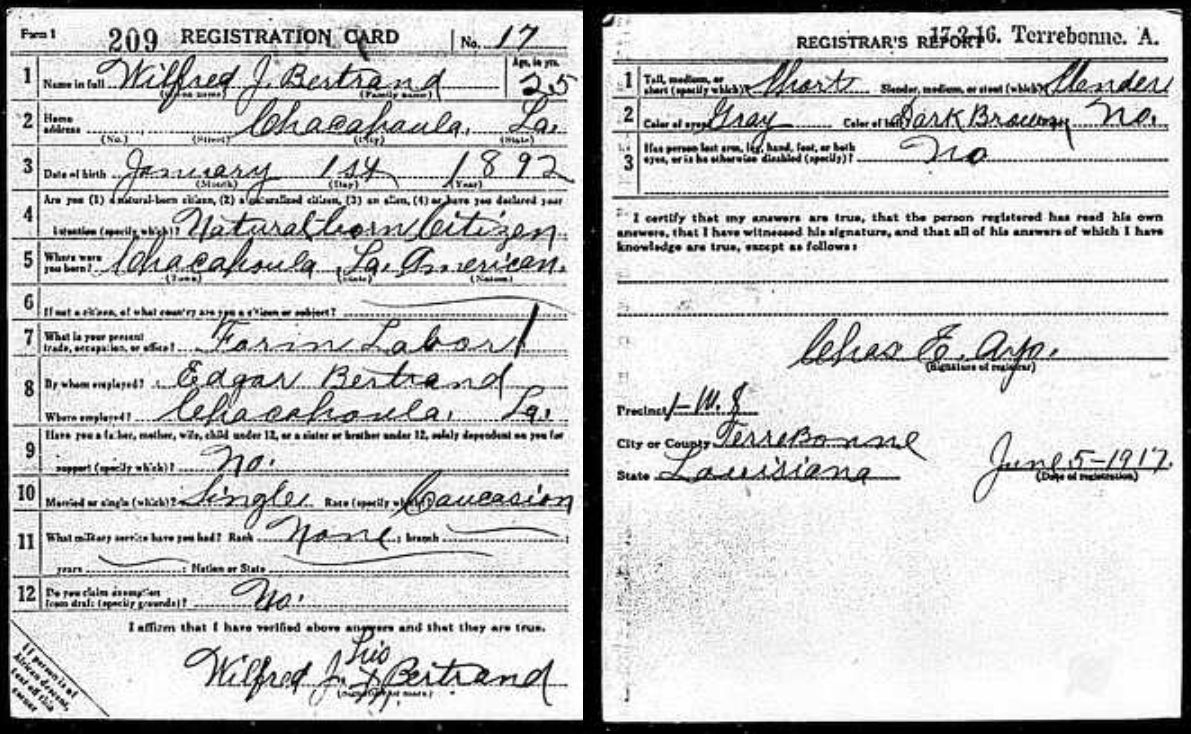 Form 1 209 REGISTRATION CARD No. 17
1 Name in full Wilfred J. Bertrand Age, in yrs. 25
(Given name) (Family name)
2 Home address Chacahoula, La.
(No.) (Street) (City) (State)
3 Date of birth January 1st 1892
(Month) (Day) (Year)
4 Are you (1) a natural-born citizen, (2) a naturalized citizen, (3) an alien, (4) or have you declared your
intention (specify which)? Natural born Citizen
5 Where were you born? Chacahoula La. American.
(Town) (State) (Nation)
6 If not a citizen, of what country are you a citizen or subject?
7 What is your present trade, occupation, or office? Farm Labor
8 By whom employed? Edgar Bertrand
Where employed? Chacahoula, La.
9 Have you a father, mother, wife, child under 12, or a sister or brother under 12, solely dependent on you for
support (specify which)? No.
10 Married or single (which)? Single Race (specify which)? Caucasion
11 What military service have you had? Rank None ; branch ;
years ; Nation or State
12 Do you claim exemption from draft (specify grounds)? No.
I affirm that I have verified above answers and that they are true.
Wilfred J. his X Bertrand
(Signature or mark)
If person is of African descent, tear off this corner
REGISTRAR'S REPORT 17-2-16. Terrebonne. A.
1 Tall, medium, or short (specify which)? Short Slender, medium, or stout (which)? Slender
2 Color of eyes Gray Color of Dark Brown No.
3 Has person lost arm, leg, hand, foot, or both eyes, or is he otherwise disabled (specify)? No
I certify that my answers are true, that the person registered has read his own
answers, that I have witnessed his signature, and that all of his answers of which I have
knowledge are true, except as follows:
Chas E. Ayo.
(Signature of registrar)
Precinct 1-W. 8
City or County TerreBonne
State Louisiana June 5-1917.
(Date of registration)